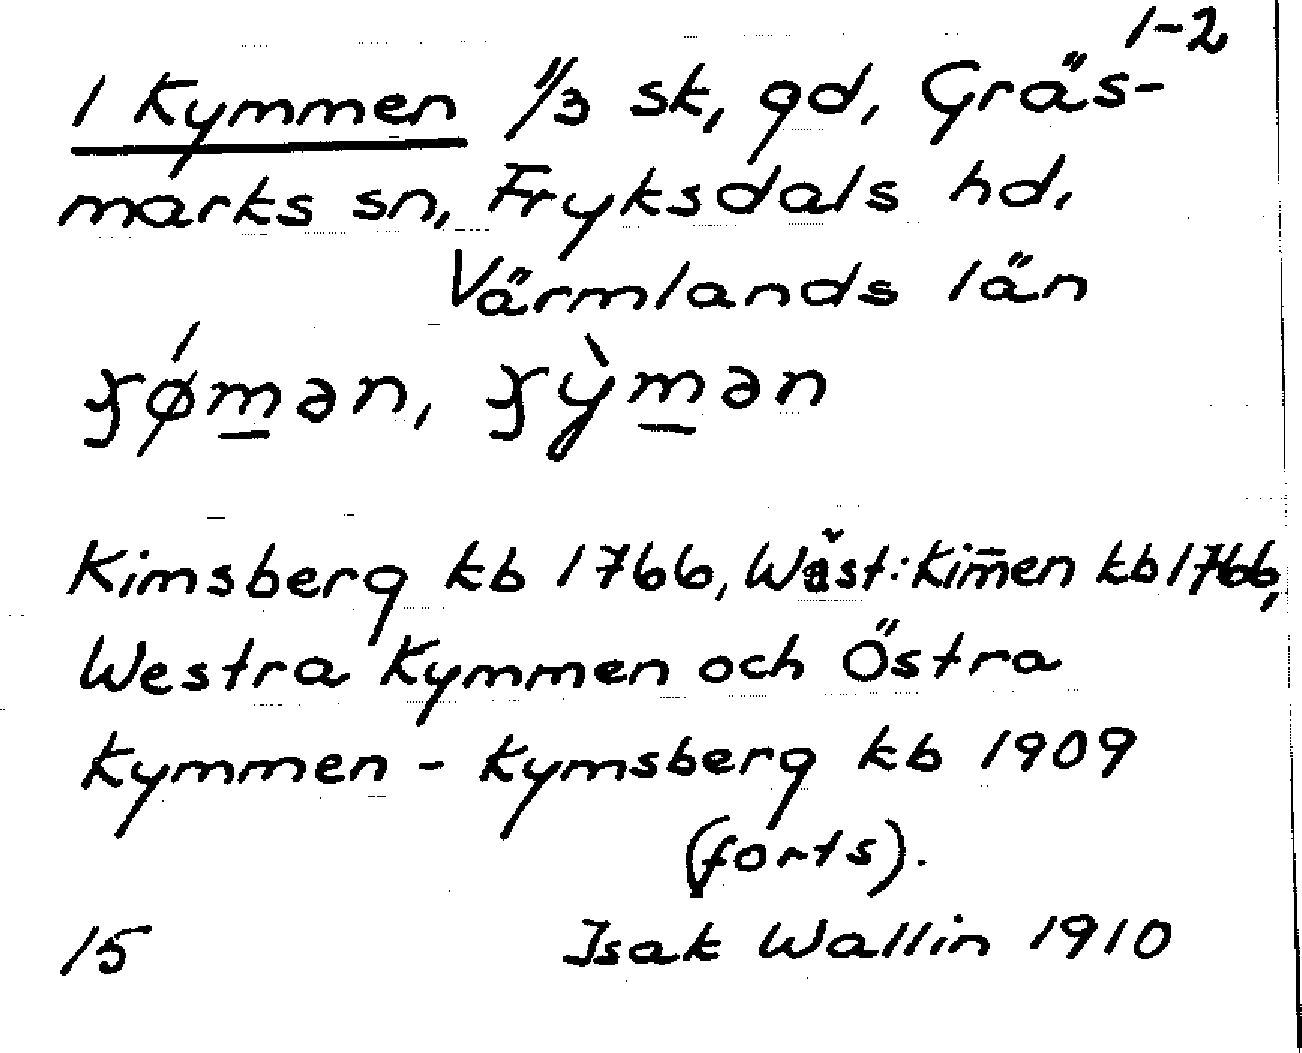 1-2
1 Kymmen 1/3 sk, gd, Gräs-
marks sn, Fryksdals hd,
Värmlands län
ɟǿm̲ən, ɟỳm̲ən
Kimsberg kb 1766, Wäst: Kim̄en kb 1766,
Westra Kymmen och Östra
Kymmen - Kymsberg kb 1909
(forts).
15 Isak Wallin 1910